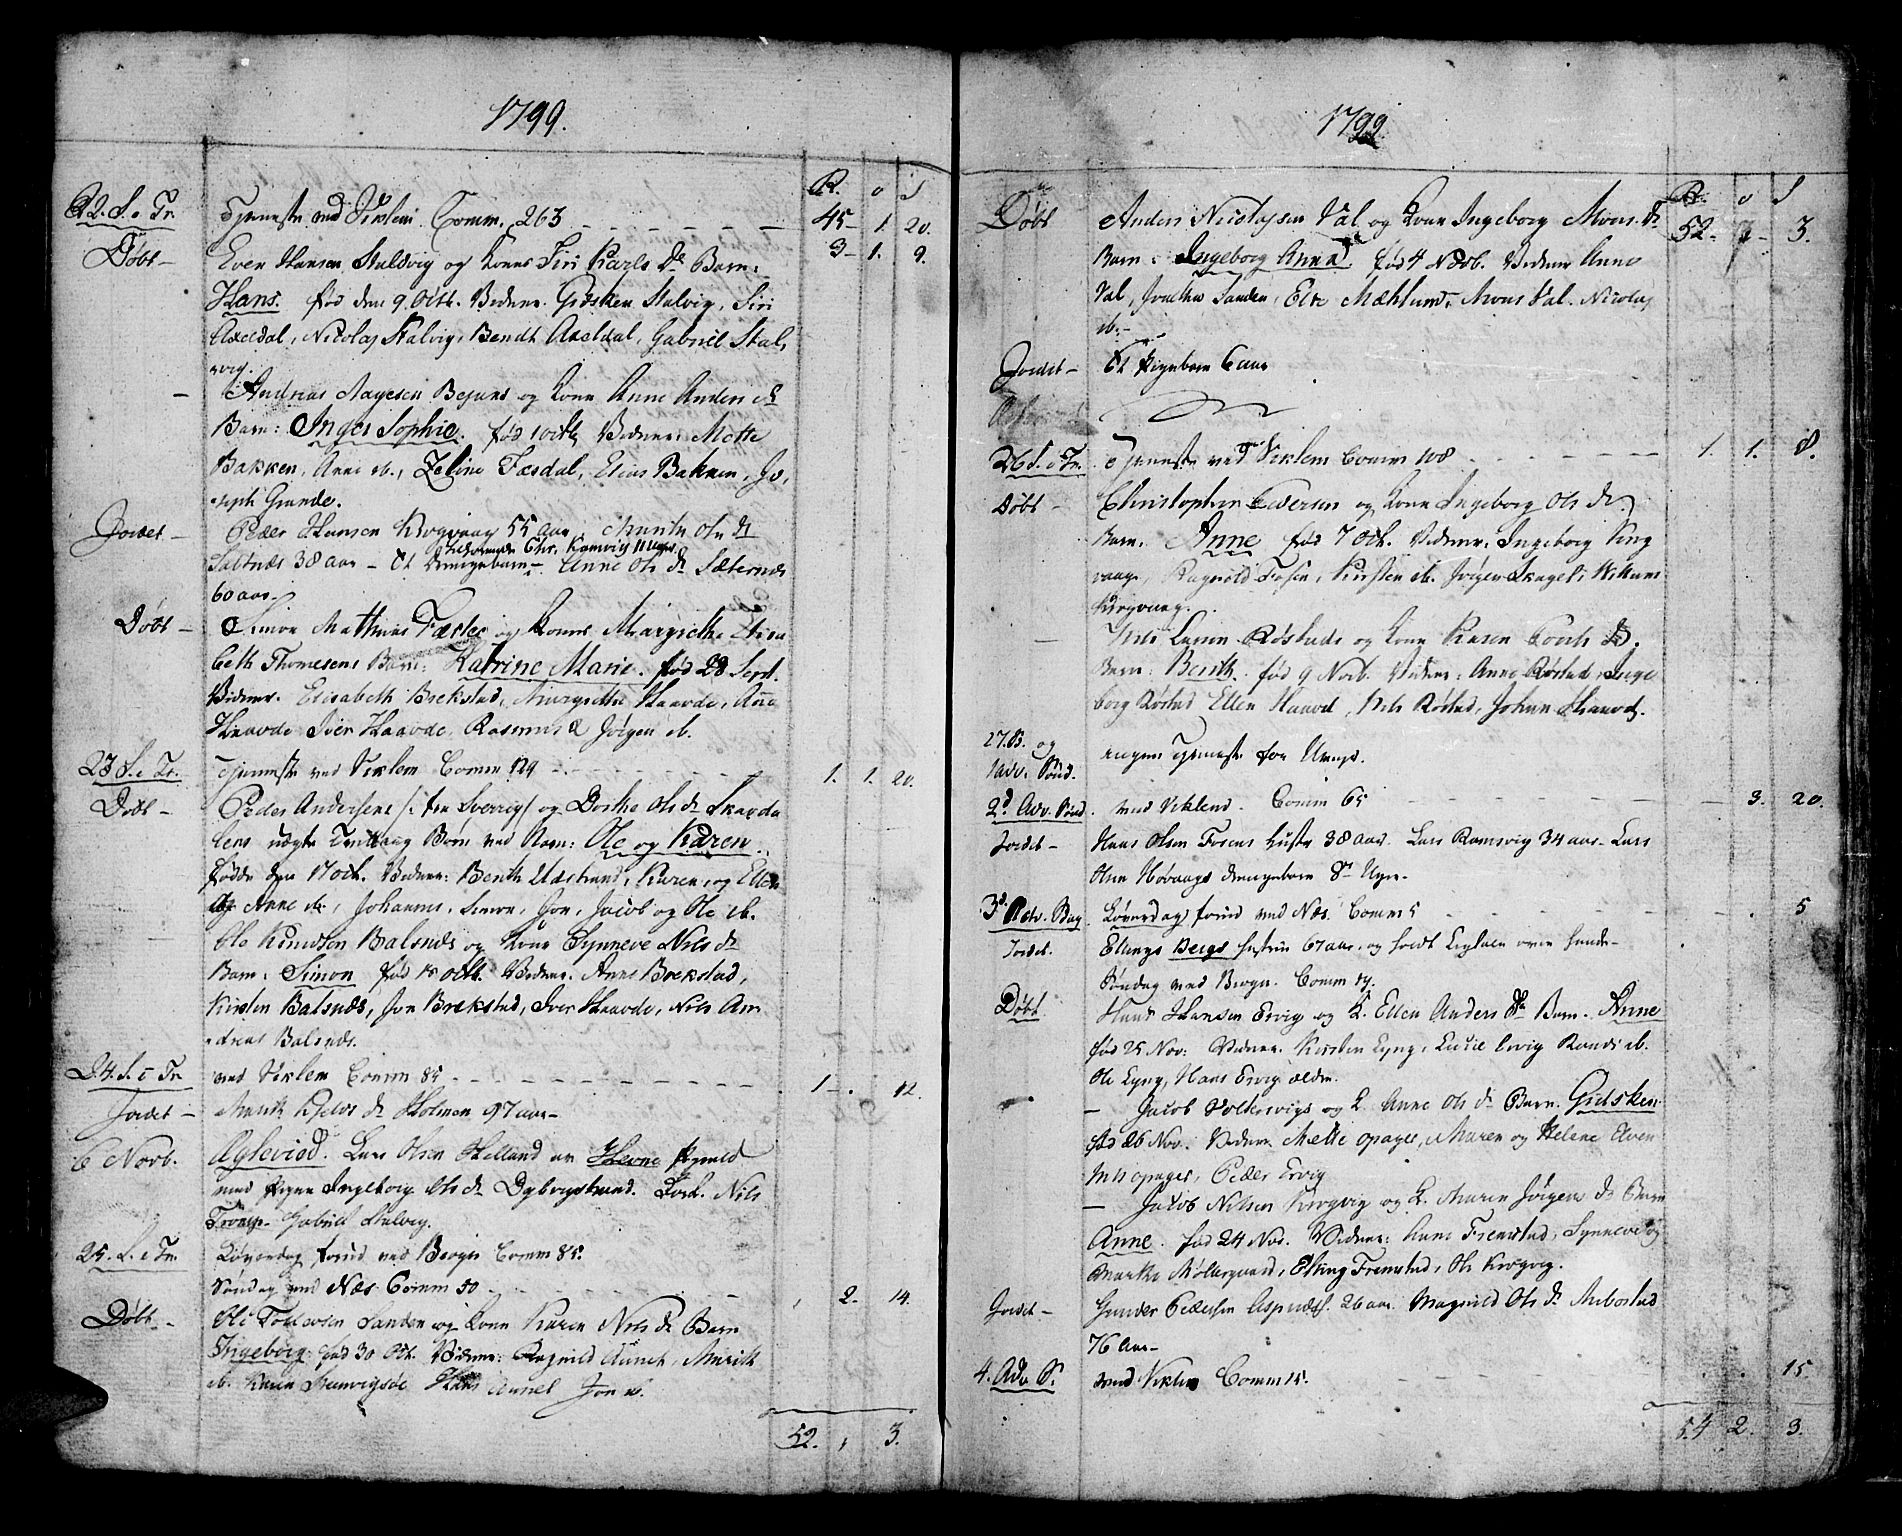 1799.
R. o S
22. S. e Tr. Tjeneste ved Viklem Comm. 263 45 - 1. 20.
Døbt - Even Hansen Stalvig og Kone Siri Karls Dr Barn: 3 - 1. 9.
Hans. fød den 9. Octb. Vidner. Gidsken Stalvig, Siri
Axeldal, Nicolaj Stalvig, Bendt Axeldal, Gabriel Stal,
vig.
- Andreas Aagesen Bejans og Kone Anne Anders dr
Barn: Inger Sophie. fød 1 octb. Vidner: Mette
Bakken, Anne ib., Zeline Færdal, Elias Bakken, Jo,
seph Grande.
Jordet - Peder Hansen Krogvaag 55 aar, Marith Ols dr
Saltnæs 38 aar - Et Drengebarn - Anne Ols dr Sæternes
60 aar.
Døbt - Simon Mathias Færler og Kone Margrethe Elisa
beth Thomesens Barn: Katrine Marie. fød 28 Sept.
Vidner. Elisabeth Brekstad, Margrethe Haavde, Ane
Haavde Iver Haavde, Rasmus & Jørgen ib.
23 S. e Tr. Tjeneste ved Viklem Comm 129 - 1. 1. 20.
Døbt - Peder Andersens /: fra Sverrig / og Dorthe Ols dr Skavda
lens uægte Tvilling Børn ved Navn: Ole og Karen.
fødde den 17 oct. Vidner: Berith Udstrand, Karen, og Ellen
og Anne ib, Johannes, Simon, Jon, Jacob og Ole ib.
Ole Knudsen Balsnæs og Kone Synneve Nils dr
Barn: Simon fød 18 octb. Vidner. Anne Brekstad,
Kirsten Balsnæs, Jon Brekstad, Iver Haavde, Nils An
dreas Balsnæs.
24. S. e Tr. ved Viklem Comm 85 - 1 - . 12.
Jordet - Marith Kjelds dr Holmen 97 aar -
6 Novb. Ægteviede. Lars Olsen Helland av Hevne Præstegield
med Pigen Ingeborg Ols dr Dybvigstrand. Forl. Nils
Gabriel Stalvig.
25. S. e Tr. Løverdag forud ved Bergn Comm 85.
Søndag ved Næs Comm 50 - . 2. 14.
Døbt - Ole Tostensen Sanden og Kone Karen Nils dr Barn
Ingeborg. fød 30 Oct. Vidner: Ragnild Aunet, Marith
ib. Karen Hans Aunet Jon ib.
52. , 3.
1799
R. o S
Døbt Anders Nicolajsen Val og Kone Ingeborg Mons Dr 52 - - 3.
Barn: Ingeborg Anna fød 4 Novb. Vidner Anne
Val, Sanden, Else Mæhlum, Mons Val. Nicolaj
ib. -
Jordet - Et Pigebarn 6 aar
26 S. e Tr. Tjeneste ved Viklem Comm 108 1. 1. 8.
Døbt - Christopher Pedersen og Kone Ingeborg Ols Dr.
Barn. Anne fød 7 Oct. Vidner. Ingeborg Krog
vaag, Ragnild Fosen, Kirsten ib. Jørgen
Krogvaag.
- Nils Larsen Røstads og Kone Karen Dr.
Barn: Berith. fød 9 Novb. Vidner: Anne Røstad, Inge
borg Røstad Ellen Haavd, Nils Røstad, Johan Haavd.
27. S. og ingen Tjeneste for Uveyr.
1 Adv. Sønd.
2d. Adv. Sønd. ved Viklem. Comm 65 - 3. 20.
Jordet - Hans Olsen Fosens Hustr 38 aar. Lars Ramsvig 34 aar - Lars
Olsen Høvaags drengebarn 8 Uger.
3d. Adv. Løverdag forud ved Næs. Comm 5 . 5
Jordet. Ellings Bergs Hustrue 67 aar, og holdt Ligtale over hende -
Søndag ved Bergn. Comm 19.
Døbt. Hans Hansen Ervig og K. Ellen Anders Dr Barn. Anne
fød 25 Nov: Vidner. Kirsten Lyng, Lucie Ervig Randi ib.
Ole Lyng, Hans Ervig ældre.
- Jacob Volkervigs og K. Anne Ols dr Barn. Gidsken
fød 26 Nov. Vidner Mette opager, Maren og Helene Even
Nils opager, Peder Ervig
- Jacob Nilsen Krogvig og K. Maren Jørgens dr Barn
Anne. fød 24 Nov. Vidner: Anne Fremstad, Synneve og
Marthe Møllegaard, Elling Fremstad, Ole Krogvig.
Jordet - Gunder Pedersen 26 aar Magnild Ols dr Aubostad
76 Aar -
4. Adv S. ved Viklem Comm 15. . . 15.
54 2. 3.